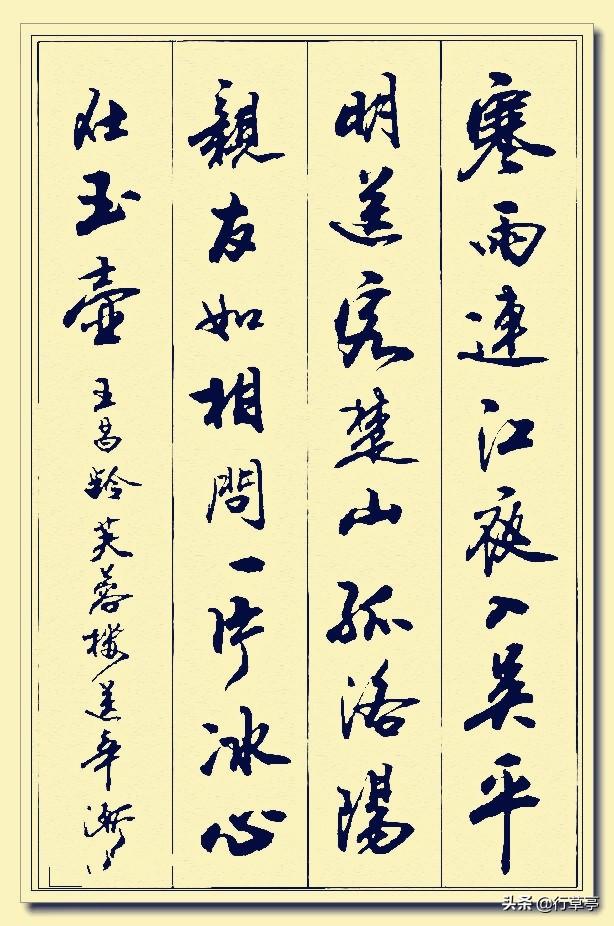 寒雨連江夜入吴平
明送客楚山孤洛陽
親友如相問一片冰心
在玉壺 王昌龄芙蓉樓送辛漸
头条 @行掌亭